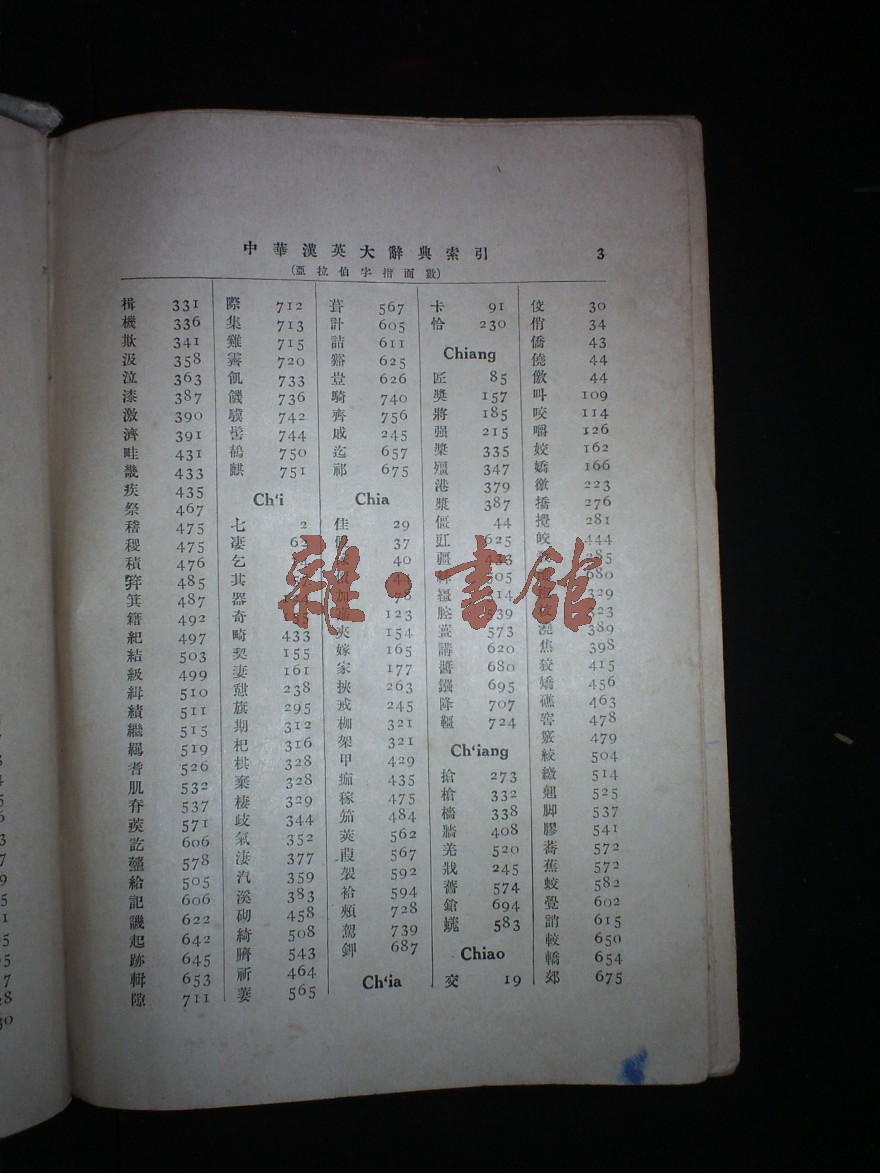 中華漢英大辭典索引 3
(亞拉伯字指面數)
楫 331
機 336
欺 341
汲 358
泣 363
漆 387
激 390
濟 391
畦 431
畿 433
疾 435
祭 467
稽 475
稷 475
積 476
笄 485
箕 487
籍 492
紀 497
結 503
級 499
緝 510
績 511
繼 515
羈 519
耆 526
肌 532
脊 537
蒺 571
訖 606
虀 578
給 505
記 606
譏 622
起 642
跡 645
輯 653
隙 711
際 712
集 713
雞 715
霽 720
飢 733
饑 736
驥 742
髻 744
鶺 750
麒 751
Ch'i
七 2
凄 62
乞
其
器
奇 153
畸 433
契 155
妻 161
憇 238
旗 295
期 312
杞 316
棋 328
棄 328
棲 329
歧 344
氣 352
淒 377
汽 359
溪 383
砌 458
綺 508
臍 543
祈 464
萋 565
葺 567
計 605
詰 611
谿 625
豈 626
騎 740
齊 756
戚 245
迄 657
祁 675
Chia
佳 29
37
40
加 78
嘉 123
夾 154
嫁 165
家 177
挾 263
戒 245
枷 321
架 321
甲 429
痂 435
稼 475
笳 484
莢 562
葭 567
袈 592
袷 594
頰 728
駕 739
鉀 687
Ch'ia
卡 91
恰 230
Chiang
匠 85
獎 157
將 185
强 215
槳 335
殭 347
港 379
漿 387
僵 44
豇 625
疆 433
絳 505
繮
腔 539
薑 573
講 620
醬 680
鏹 695
降 707
韁 724
Ch'iang
搶 273
槍 332
檣 338
牆 408
羌 520
戕 245
薔 574
鎗 694
蜣 583
Chiao
交 19
佼 30
俏 34
僑 43
僥 44
儌 44
叫 109
咬 114
嚼 126
姣 162
嬌 166
徼 223
撟 276
攪 281
皎 444
385
680
329
323
澆 389
焦 398
狡 415
矯 456
礁 463
窖 478
竅 479
絞 504
繳 514
翹 525
脚 537
膠 541
蕎 572
蕉 572
蛟 582
覺 602
誚 615
較 650
轎 654
郊 675
雜·書館